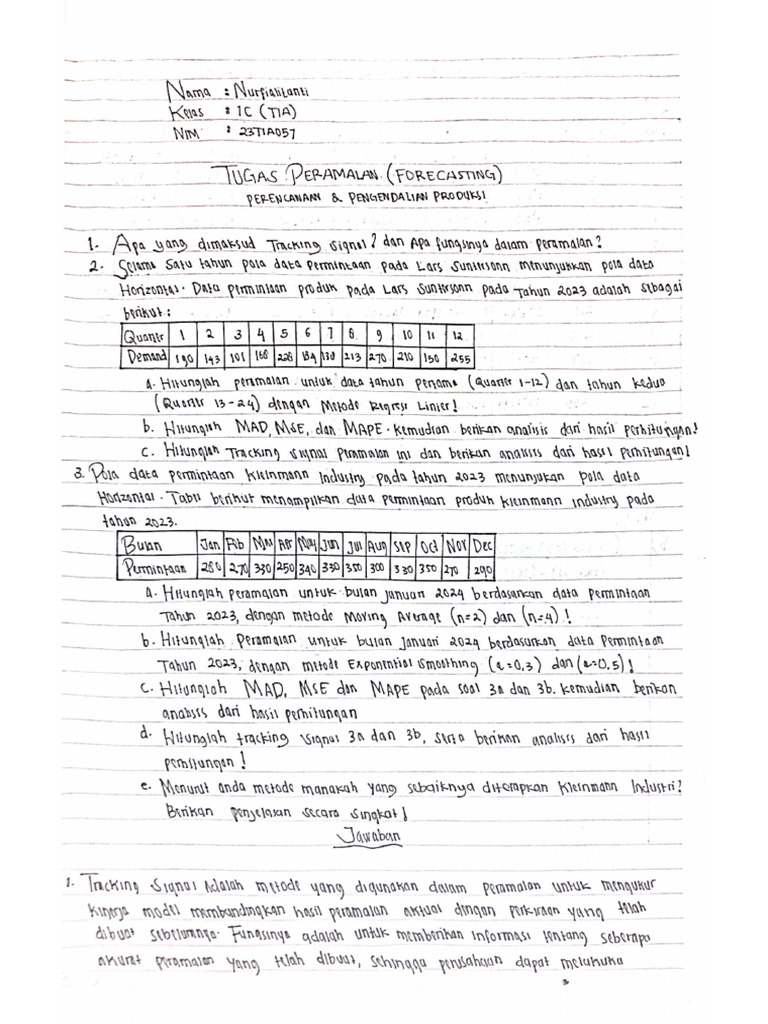 Nama : Nurfialilanti
Kelas : 1C (TIA)
NIM : 23TIA057
TUGAS PERAMALAN (FORECASTING)
PERENCANAAN & PENGENDALIAN PRODUKSI
1. Apa yang dimaksud Tracking signal? dan Apa fungsinya dalam peramalan?
2. Selama satu tahun pola data permintaan pada Lars Sunirsonn menunjukkan pola data
Horizontal. Data permintaan produk pada Lars Sunirsonn pada tahun 2023 adalah sebagai
berikut:
Quarter 1 2 3 4 5 6 7 8 9 10 11 12
Demand 190 143 101 168 228 184 138 213 270 210 150 255
a. Hitunglah peramalan untuk data tahun pertama (Quarter 1-12) dan tahun kedua
(Quarter 13-24) dengan Metode Regresi Linier!
b. Hitunglah MAD, MSE, dan MAPE. kemudian berikan analisis dari hasil perhitungan!
c. Hitunglah Tracking signal peramalan ini dan berikan analisis dari hasil perhitungan!
3. Pola data permintaan Kleinmann Industry pada tahun 2023 menunjukan pola data
Horizontal. Tabel berikut menampilkan data permintaan produk Kleinmann Industry pada
tahun 2023.
Bulan Jan Feb Mar Apr May Jun Jul Aug Sep Oct Nov Dec
Permintaan 280 270 330 250 340 330 350 300 330 350 270 290
a. Hitunglah peramalan untuk bulan januari 2024 berdasarkan data Permintaan
Tahun 2023, dengan metode Moving Average (n=2) dan (n=4)!
b. Hitunglah Peramalan untuk bulan januari 2024 berdasarkan data Permintaan
Tahun 2023, dengan metode Exponential Smoothing (α=0,3) dan (α=0,5)!
c. Hitunglah MAD, MSE dan MAPE pada soal 3a dan 3b. kemudian berikan
analisis dari hasil perhitungan
d. Hitunglah tracking signal 3a dan 3b, serta berikan analisis dari hasil
perhitungan!
e. Menurut anda metode manakah yang sebaiknya diterapkan Kleinmann Industri?
Berikan penjelasan secara singkat!
Jawaban
1. Tracking signal adalah metode yang digunakan dalam peramalan untuk mengukur
kinerja model membandingkan hasil peramalan aktual dengan perkiraan yang telah
dibuat sebelumnya. Fungsinya adalah untuk memberikan informasi tentang seberapa
akurat peramalan yang telah dibuat, sehingga perusahaan dapat melakuka